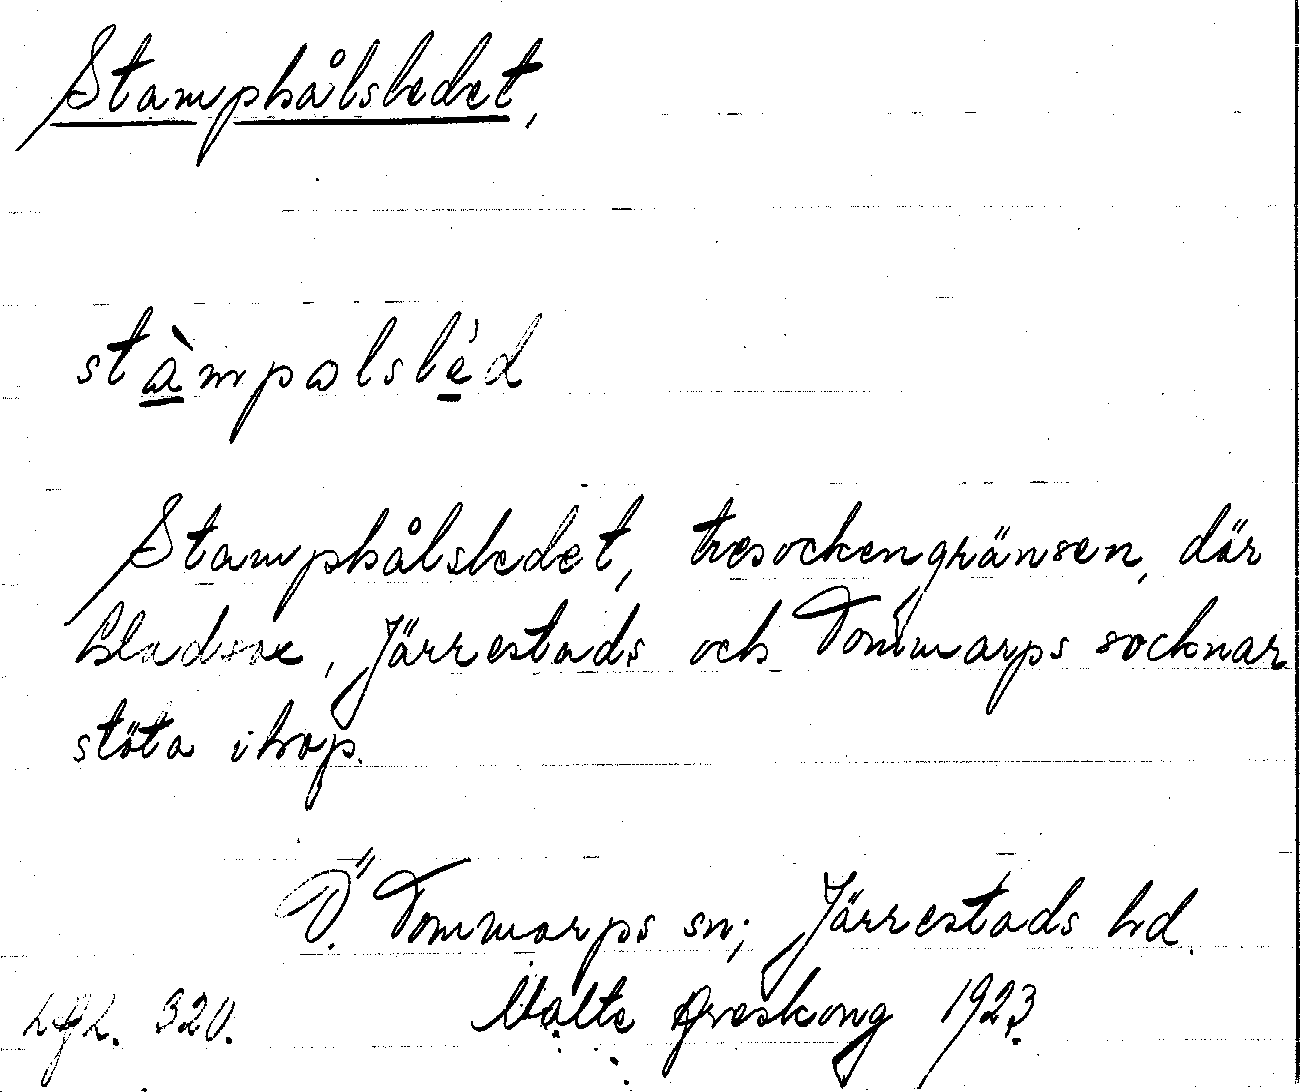 Stamphålsledet,
stàmpalsléd
Stamphålsledet, tresockengränsen, där
Gladsax, Järrestads och Tommarps socknar
stöta ihop.
Ö. Tommarps sn; Järrestads hd.
Malte 1923.
320.